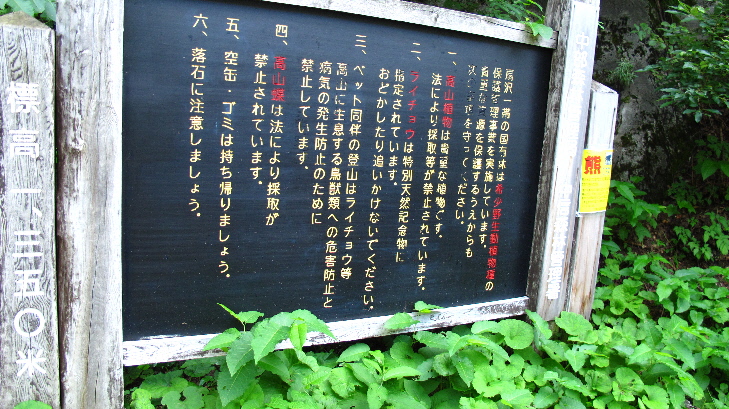 房沢一帯の国有林は希少野生動植物種の
保護管理事業を実施しています。
貴重な資源を保護するうえからも
次の事項を守ってください。
一、高山植物は貴重な植物です。
法により採取等が禁止されています。
二、ライチョウは特別天然記念物に
指定されています。
おどかしたり追いかけないでください。
三、ペット同伴の登山はライチョウ等
高山に生息する鳥獣類への危害防止と
病気の発生防止のために
禁止しています。
四、高山蝶は法により採取が
禁止されています。
五、空缶・ゴミは持ち帰りましょう。
六、落石に注意しましょう。
標高一、三五〇米